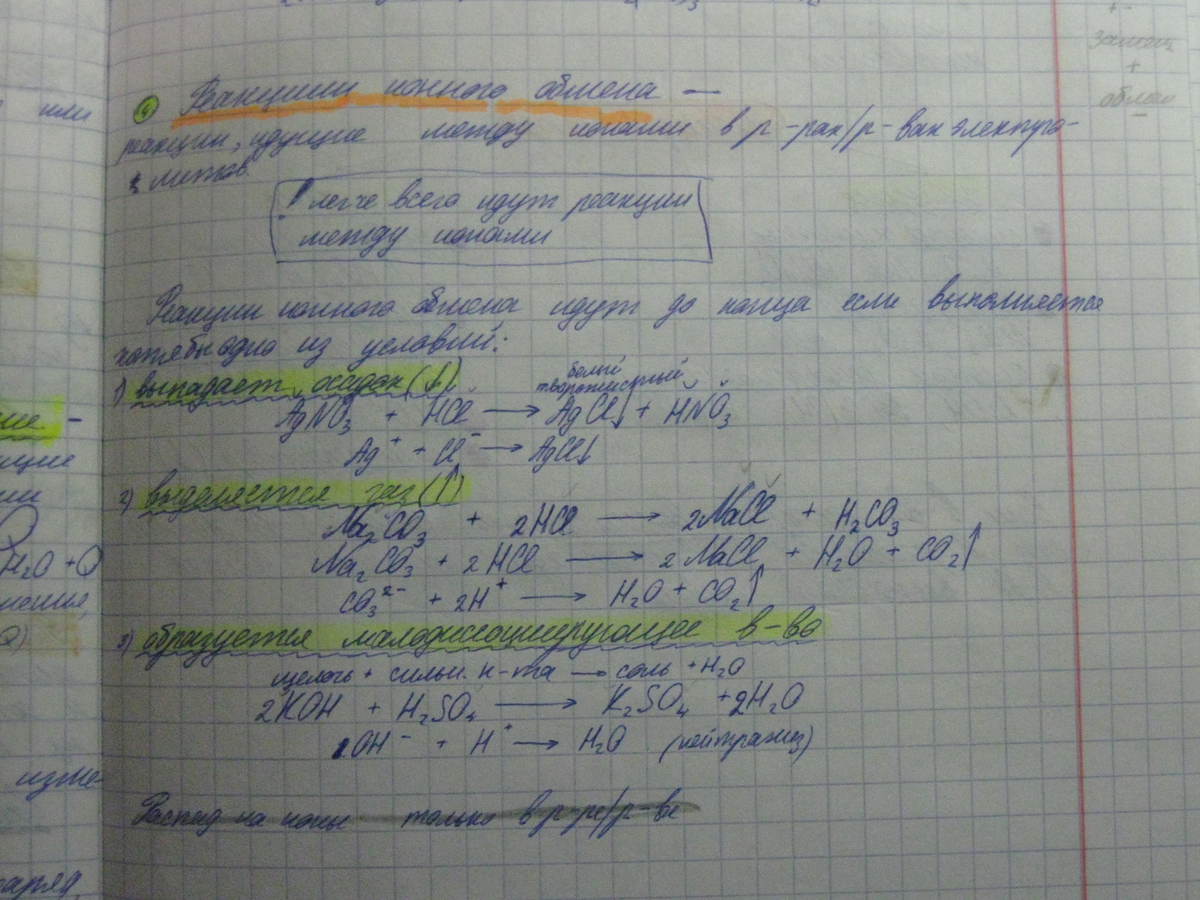 или
4 Реакции ионного обмена —
реакции, идущие между ионами в р-рах/р-вах электро-
литов
! легче всего идут реакции
между ионами
Реакции ионного обмена идут до конца если выполняется
хотябы одно из условий:
1) выпадает осадок (↓)
белый
творожистый
AgNO₃ + HCl → AgCl↓ + HNO₃
Ag⁺ + Cl⁻ → AgCl↓
2) выделяется газ (↑)
Na₂CO₃ + 2HCl → 2NaCl + H₂CO₃
Na₂CO₃ + 2HCl → 2NaCl + H₂O + CO₂↑
CO₃²⁻ + 2H⁺ → H₂O + CO₂↑
3) образуется малодиссоциирующее в-во
щелочь + сильн. к-та → соль + H₂O
2KOH + H₂SO₄ → K₂SO₄ + 2H₂O
OH⁻ + H⁺ → H₂O (нейтрализ)
Распад на ионы только в р-ре/р-ве
H₂O + Q
изме-
замещ
+
обмен